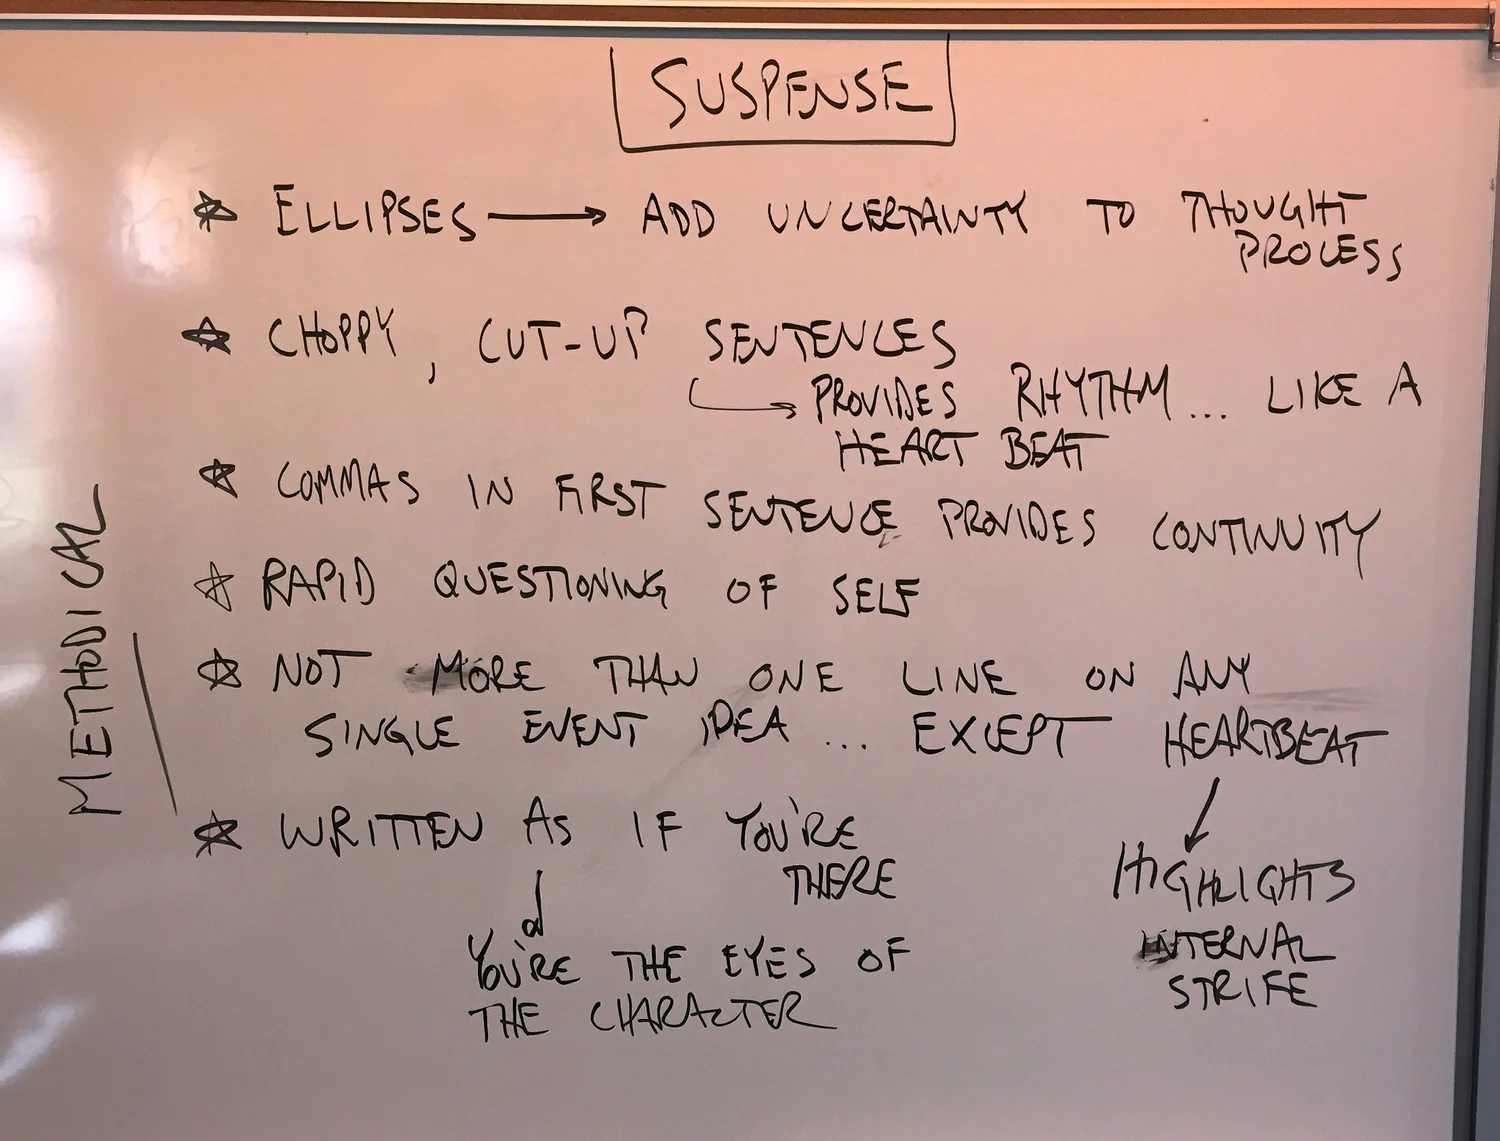 SUSPENSE
ELLIPSES → ADD UNCERTAINTY TO THOUGHT
PROCESS
CHOPPY, CUT-UP SENTENCES
PROVIDES RHYTHM... LIKE A
HEART BEAT
COMMAS IN FIRST SENTENCE PROVIDES CONTINUITY
RAPID QUESTIONING OF SELF
METHODICAL
NOT MORE THAN ONE LINE ON ANY
SINGLE EVENT IDEA... EXCEPT HEARTBEAT
HIGHLIGHTS
INTERNAL
STRIFE
WRITTEN AS IF YOU'RE
THERE
YOU'RE THE EYES OF
THE CHARACTER